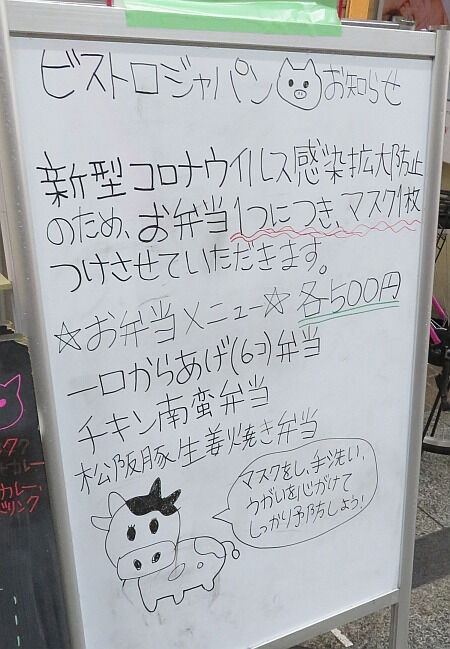 ビストロジャパン お知らせ
新型コロナウイルス感染拡大防止
のため、お弁当1つにつき、マスク1枚
つけさせていただきます。
☆お弁当メニュー☆ 各500円
一口からあげ(6コ)弁当
チキン南蛮弁当
松阪豚生姜焼き弁当
マスクをし、手洗い、
うがいを心がけて
しっかり予防しよう!
カレー
カレー、